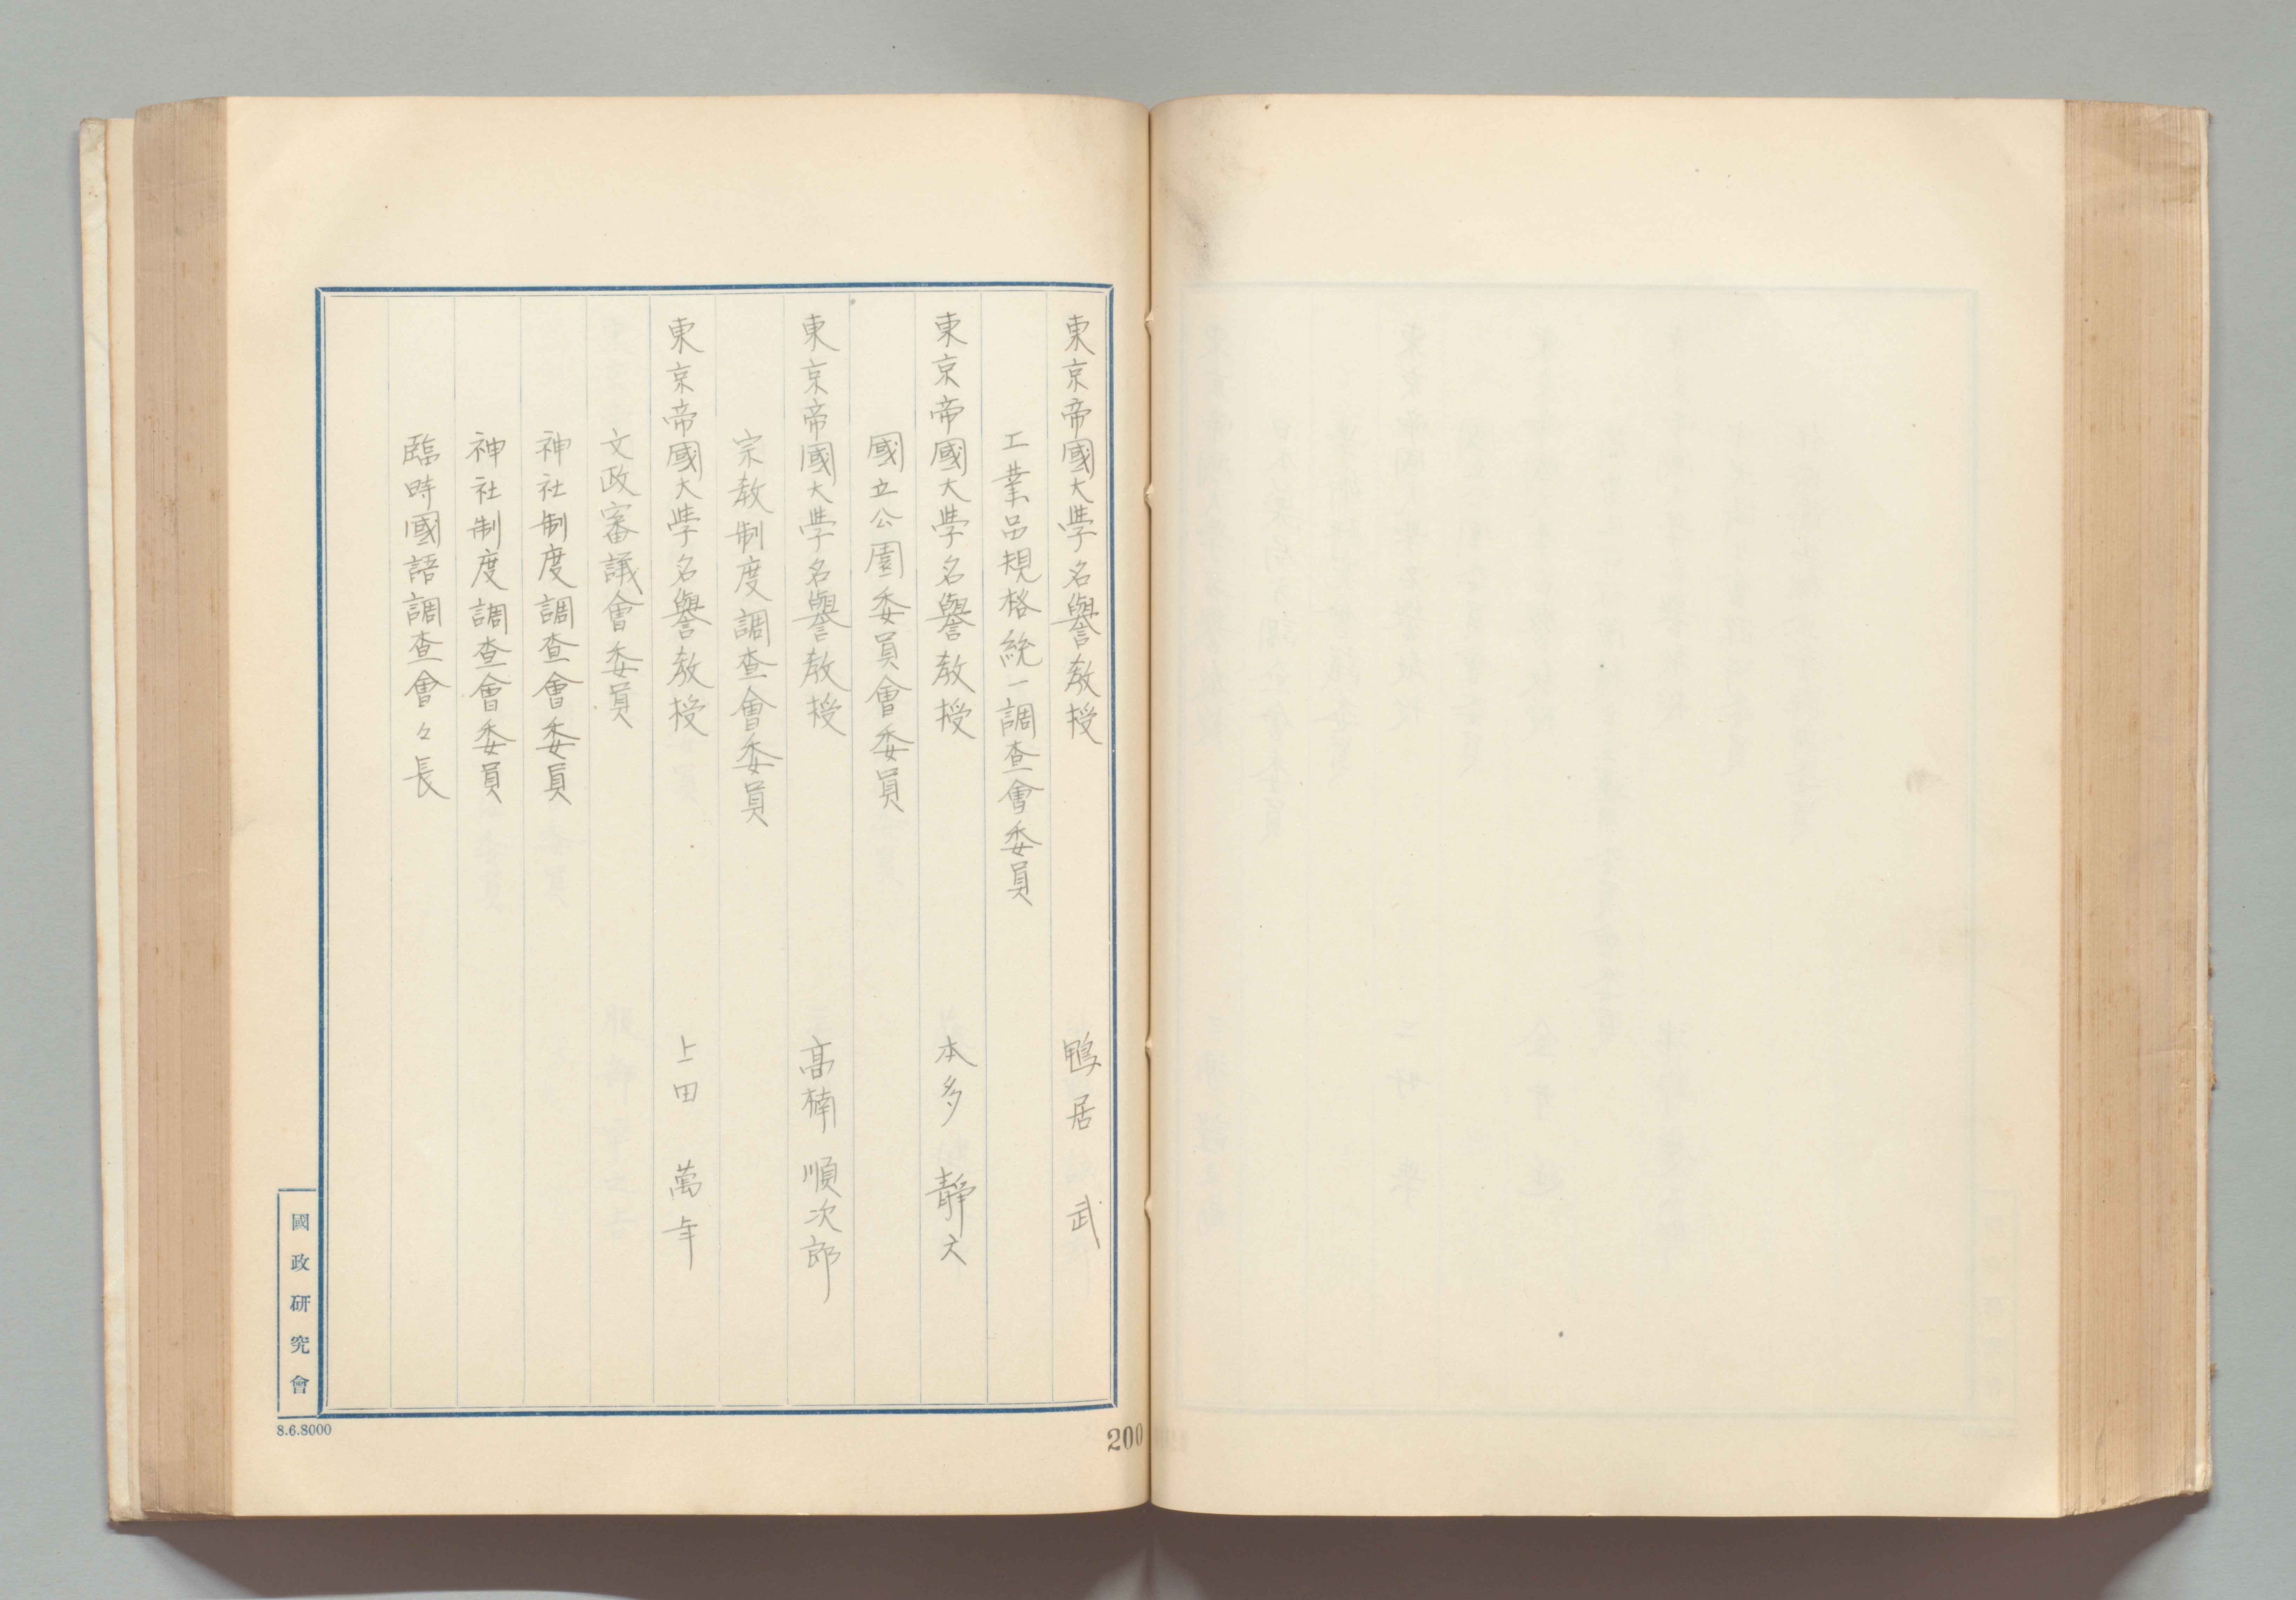 東京帝國大學名譽教授 鴨居 武
工業品規格統一調査會委員
東京帝國大學名譽教授 本多 靜六
國立公園委員會委員
東京帝國大學名譽教授 高楠 順次郎
宗教制度調査會委員
東京帝國大學名譽教授 上田 萬年
文政審議會委員
神社制度調査會委員
神社制度調査會委員
臨時國語調査會々長
國政研究會
8.6.8000
200